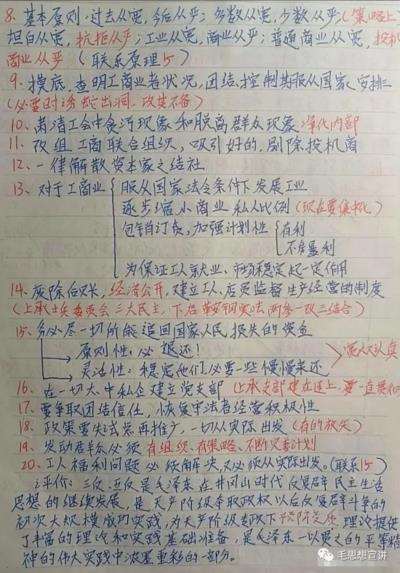 8、基本原则:过去从宽,今后从严;多数从宽,少数从严;(策略上)
坦白从宽,抗拒从严;工业从宽,商业从严;普通商业从宽,投机
商业从严 (联系原理15)
9、摸底,查明工商业者状况,团结、控制其服从国家安排
(必要时诱蛇出洞,改造不合)
10、肃清工会中贪污现象和脱离群众现象 净化内部
11、改组工商联合组织,吸引好的,剔除投机商
12、一律解散资本家之结社
13、对于工商业
服从国家法令条件下发展工业
逐步缩小商业私人比例
包销订货,加强计划性
有利
不准暴利
为保证工人就业、市场稳定起一定作用
14、废除后账,经济公开,建立工人、店员监督生产经营的制度
(上承士兵委员会三大民主,下启鞍钢宪法两参一改三结合)
15、务必尽一切可能追回国家人民损失的资金
原则性:必退还!
灵活性:稳定他们,必要一些慢慢来还
16、在一切大中私企建立党支部
17、要争取团结信任,恢复守法者经营积极性
18、政策要先试点再推广,一切从实际出发
19、发动群众必须有组织、有策略、不断完善计划
20、工人福利问题必须解决,又必须从实际出发。(联系15)
评价:三反五反是毛泽东在井冈山时代反官僚民主生活
思想的继续发展,是无产阶级夺取政权以后反官僚斗争的
初次大规模成功实践,为无产阶级专政下 理论提供
了丰富的理论和实践基础准备,是毛泽东一以贯之的平等精
神的伟大实践中浓墨重彩的一部分。
毛思想宣讲